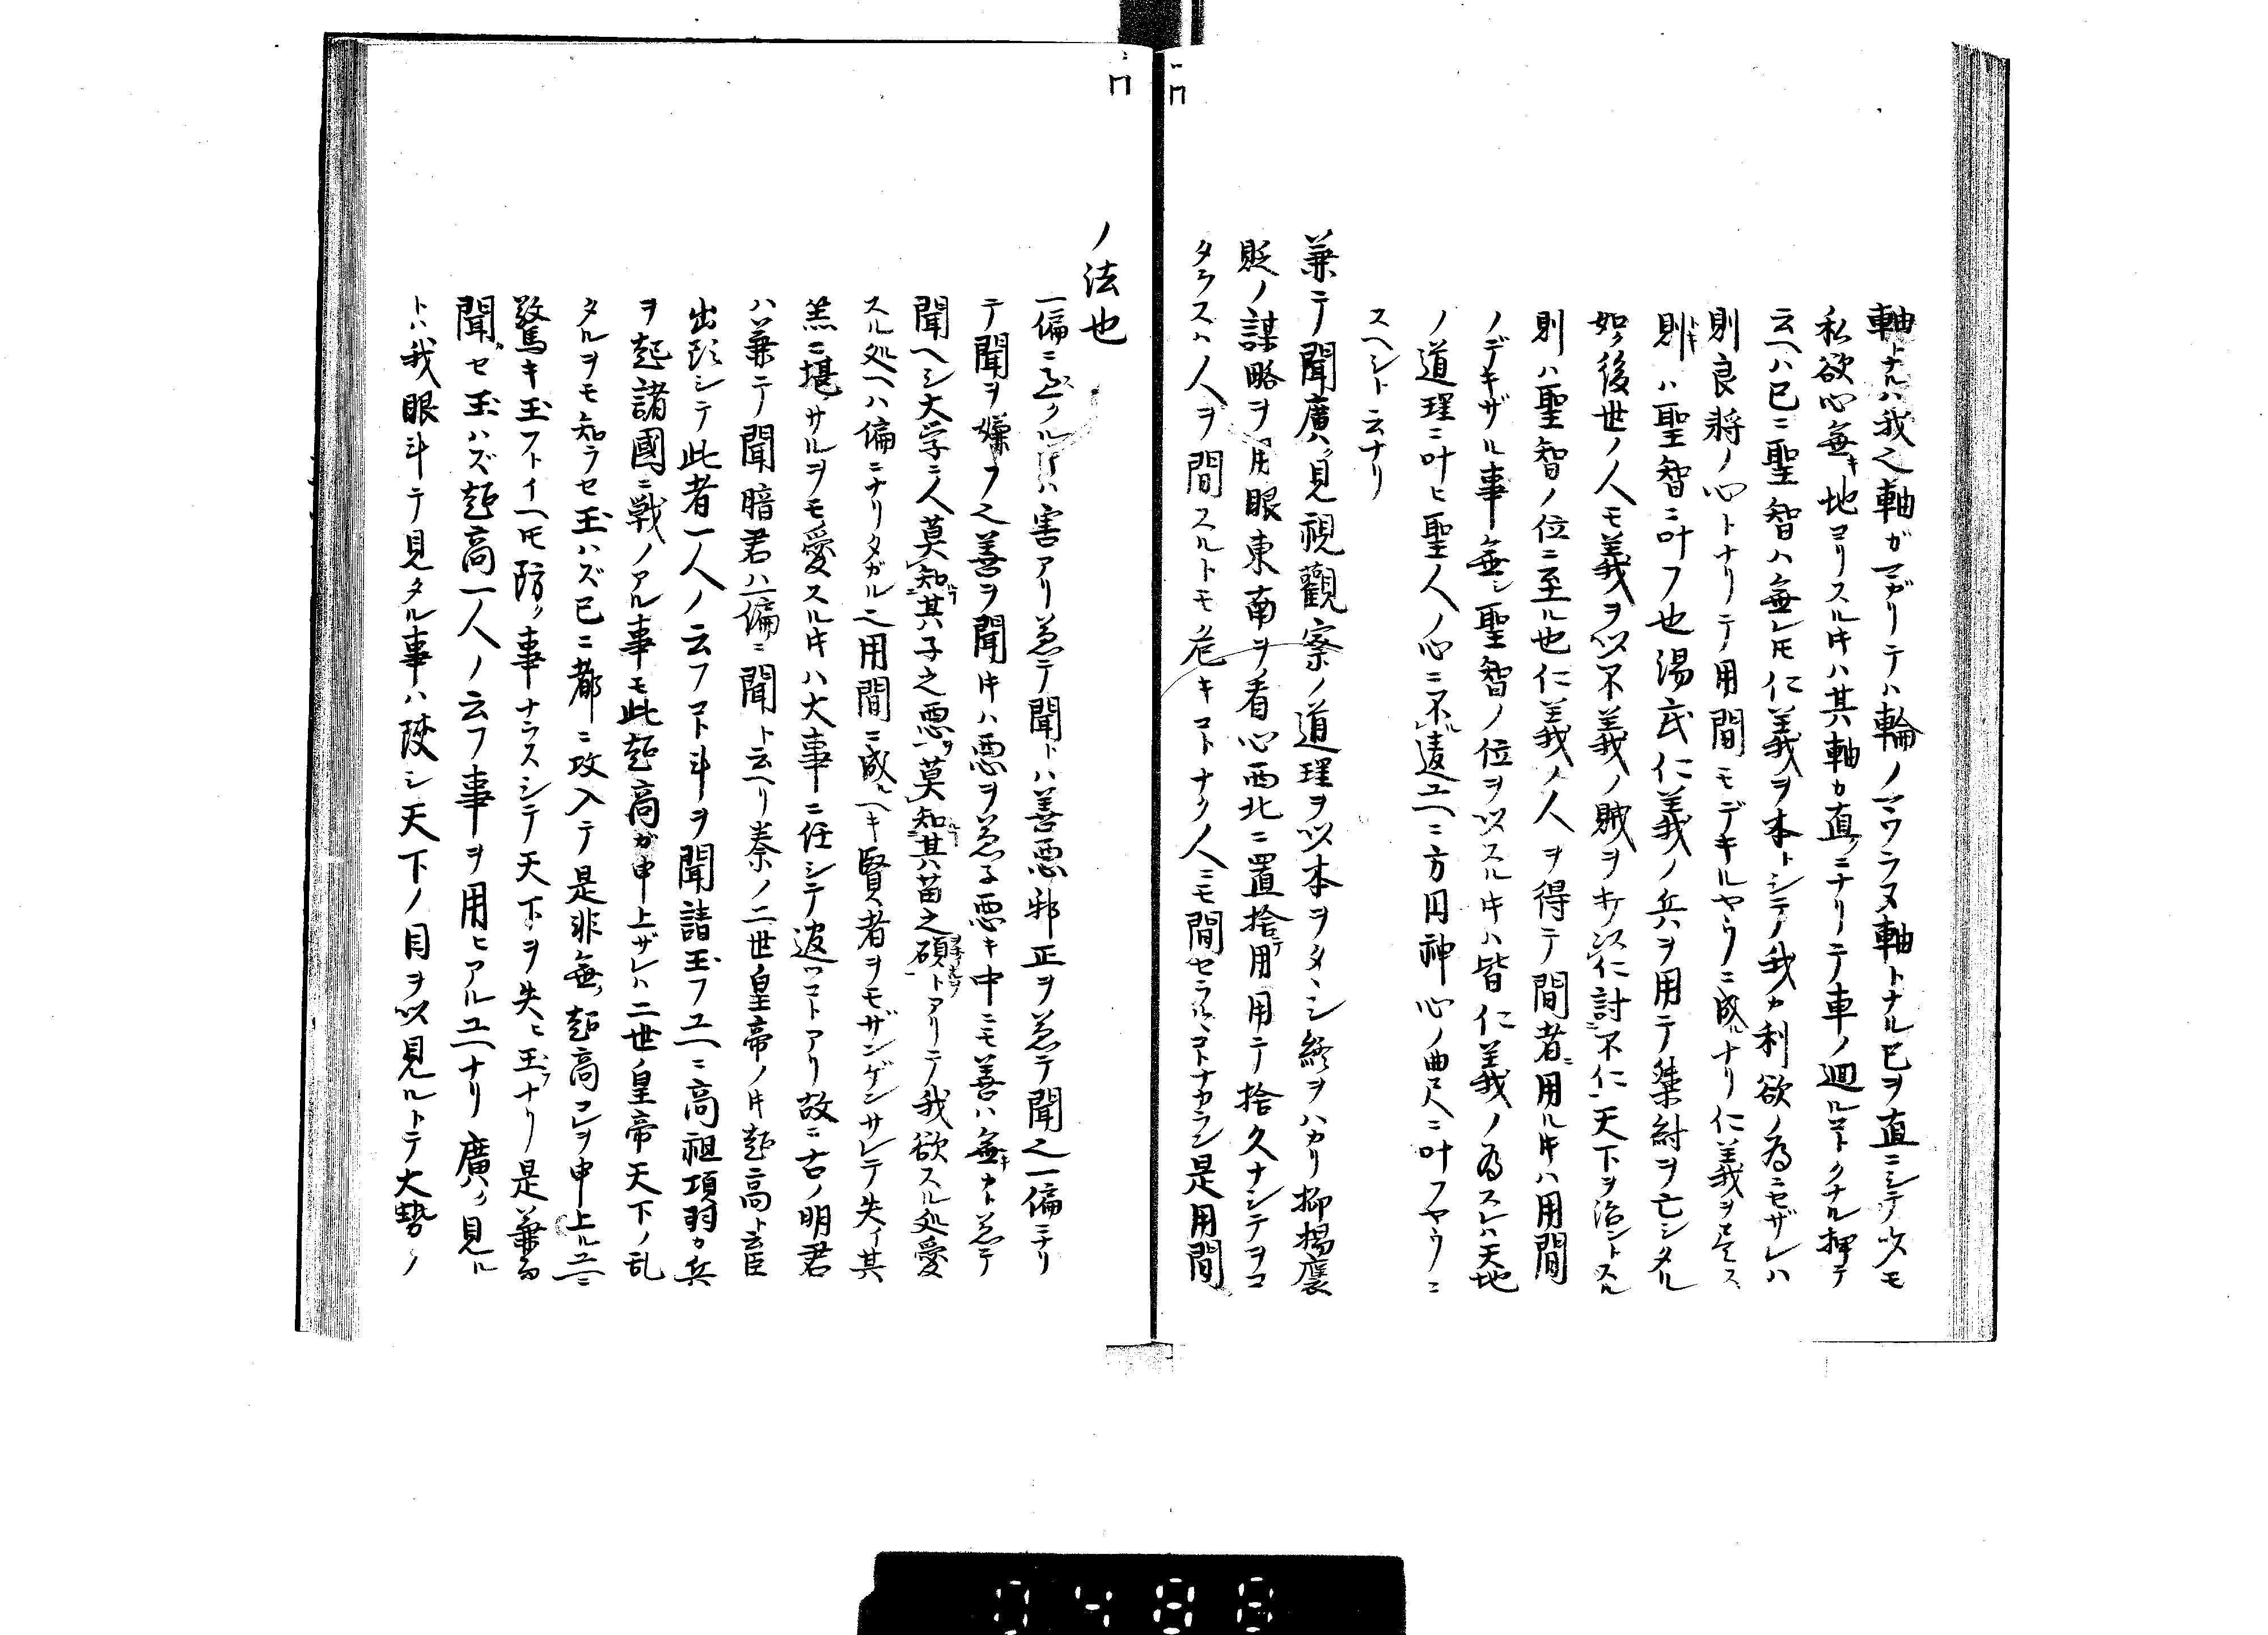 軸トナルハ我之軸ガマガリテハ輪ノマワラヌ軸トナル已ヲ直ニシテ少モ
私欲心無キ地ヨリスル片ハ其軸カ直ニナリテ車ノ廻ルコトクナル押テ
云ヘハ已ニ聖智ハ無レ圧仁義ヲ本トシテ我カ利欲ノ為ニセザレハ
則良將ノ心トナリテ用間モデキルヤウニ成ルナリ仁義ヲ
則ハ聖智ニ叶フ也湯武仁義ノ兵ヲ用テ桀紂ヲ亡シタル
如ク後世ノ人モ義ヲ以不義ノ賊ヲ仁討不仁天下ヲ治ントスル
則ハ聖智ノ位ニ至ル也仁義ノ人ヲ得テ間者ニ用ル片ハ用間
ノデキザル事無シ聖智ノ位ヲ以スル片ハ皆仁義ノ為スレハ天地
ノ道理ニ叶ヒ聖人ノ心ニ不違ユヘニ方円神心ノ曲尺ニ叶フヤウニ
スヘシト云ナリ
兼テ聞廣ク見視觀察ノ道理ヲ以本ヲタヽシ終ヲハカリ抑揚褒
貶ノ謀略ヲ用眼東南ヲ看心西北ニ置捨テ用用テ捨久ナシテヲコ
タラスハ人ヲ間スルトモ危キコトナク人ニモ間セラルヽコトナカラン是用間
ノ法也
一偏ニ聞クハ害アリ兼テ聞トハ善悪邪正ヲ兼テ聞之一偏ニナリ
テ聞ヲ嫌フ之善ヲ聞片ハ悪ヲ兼子悪キ中ニモ善ハ無キカト兼テ
聞ヘシ大学ニ人莫知其子之悪莫知其苗之碩トアリテ我欲スル処愛
スル処ヘハ偏ニナリタガル之用間ニ成ルヘキ賢者ヲモザンゲンサレテ失イ其
羔ニ堪サルヲモ愛スル片ハ大事ニ任シテ返コトアリ故ニ古ノ明君
ハ兼テ聞暗君ハ偏ニ聞ト云ヘリ秦ノ二世皇帝ノ片趙高ト云臣
出頭シテ此者一人ノ云フコト斗ヲ聞請玉フユヘニ高祖項羽カ兵
ヲ起諸國ニ戦ノアル事モ此趙高ガ申上ザレハ二世ノ皇帝天下ノ乱
タルヲモ知ラセ玉ハズ已ニ都ニ攻入テ是非無ク趙高コレヲ申上ルユヘニ
驚キ玉フトイヘ圧防ク事ナラスシテ天下ヲ失ヒ玉フナリ是兼而
聞セ玉ハズ趙高一人ノ云フ事ヲ用ヒアルユヘナリ廣ク見ル
トハ我眼斗テ見タル事ハ陜シ天下ノ目ヲ以見ルトテ大勢ノ